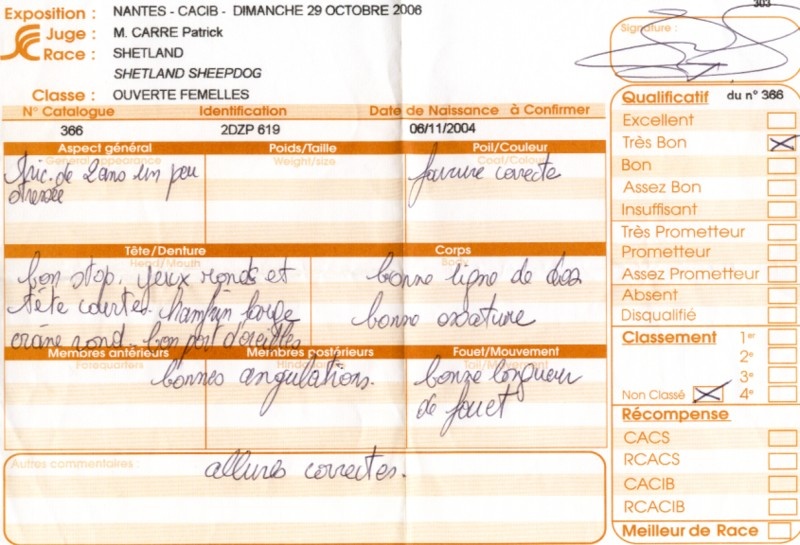 303
Exposition : NANTES - CACIB - DIMANCHE 29 OCTOBRE 2006
Juge : M. CARRE Patrick
Race : SHETLAND
SHETLAND SHEEPDOG
Classe : OUVERTE FEMELLES
Signature :
N° Catalogue Identification Date de Naissance à Confirmer
366 2DZP 619 06/11/2004
Aspect général Poids/Taille Poil/Couleur
General appearance Weight/size Coat/Colour
de 2 ans un peu
stressée
fourrure correcte
Tête/Denture Corps
Head/Mouth Body
bon stop. yeux ronds et
tête courtes. chanfrin large
crâne rond. bon port d'oreilles
bonne ligne de dos
bonne ossature
Membres antérieurs Membres postérieurs Fouet/Mouvement
Forequarters
bonnes angulations.
bonne longueur
de fouet
Autres commentaires :
allures correctes.
Qualificatif du n° 366
Excellent
Très Bon
Bon
Assez Bon
Insuffisant
Très Prometteur
Prometteur
Assez Prometteur
Absent
Disqualifié
Classement 1er
2e
3e
Non Classé 4e
Récompense
CACS
RCACS
CACIB
RCACIB
Meilleur de Race